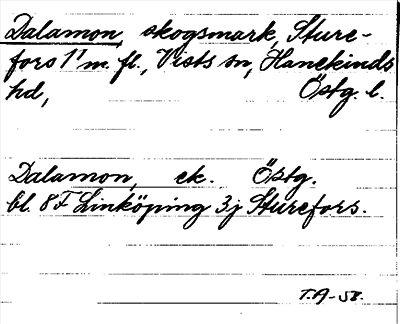 Dalamon, skogsmark, Sture-
fors 1¹ m. fl., Vists sn, Hanekinds
hd, Östg. l.
Dalamon, ek. Östg.
bl. 8F Linköping 3j Sturefors.
T.A-58.